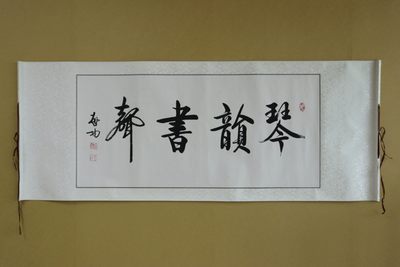 琴韻書聲
啟功